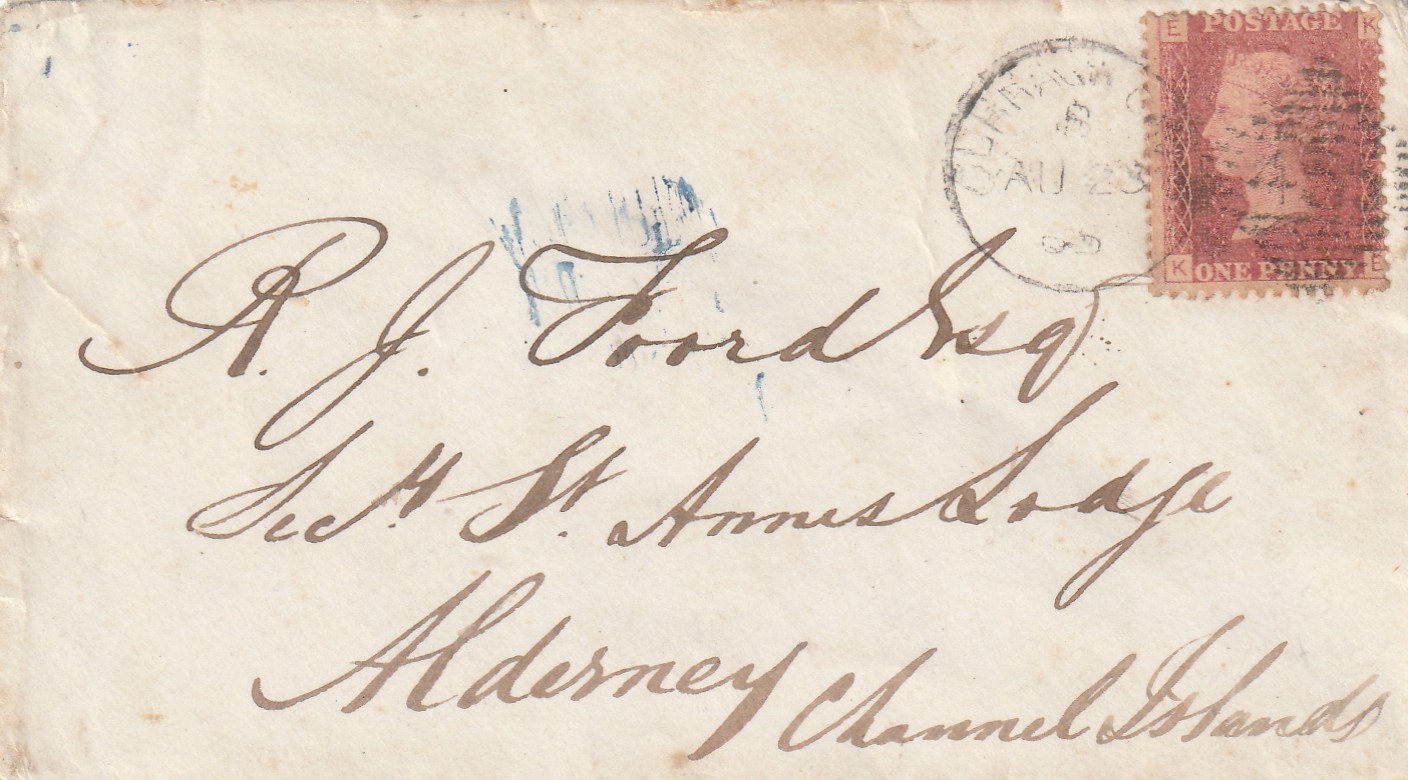 E POSTAGE K
CURRAGH C
B
AU 23
4
K ONE PENNY E
R. J. Foord Esq
Secty St. Annes Lodge
Alderney Channel Islands